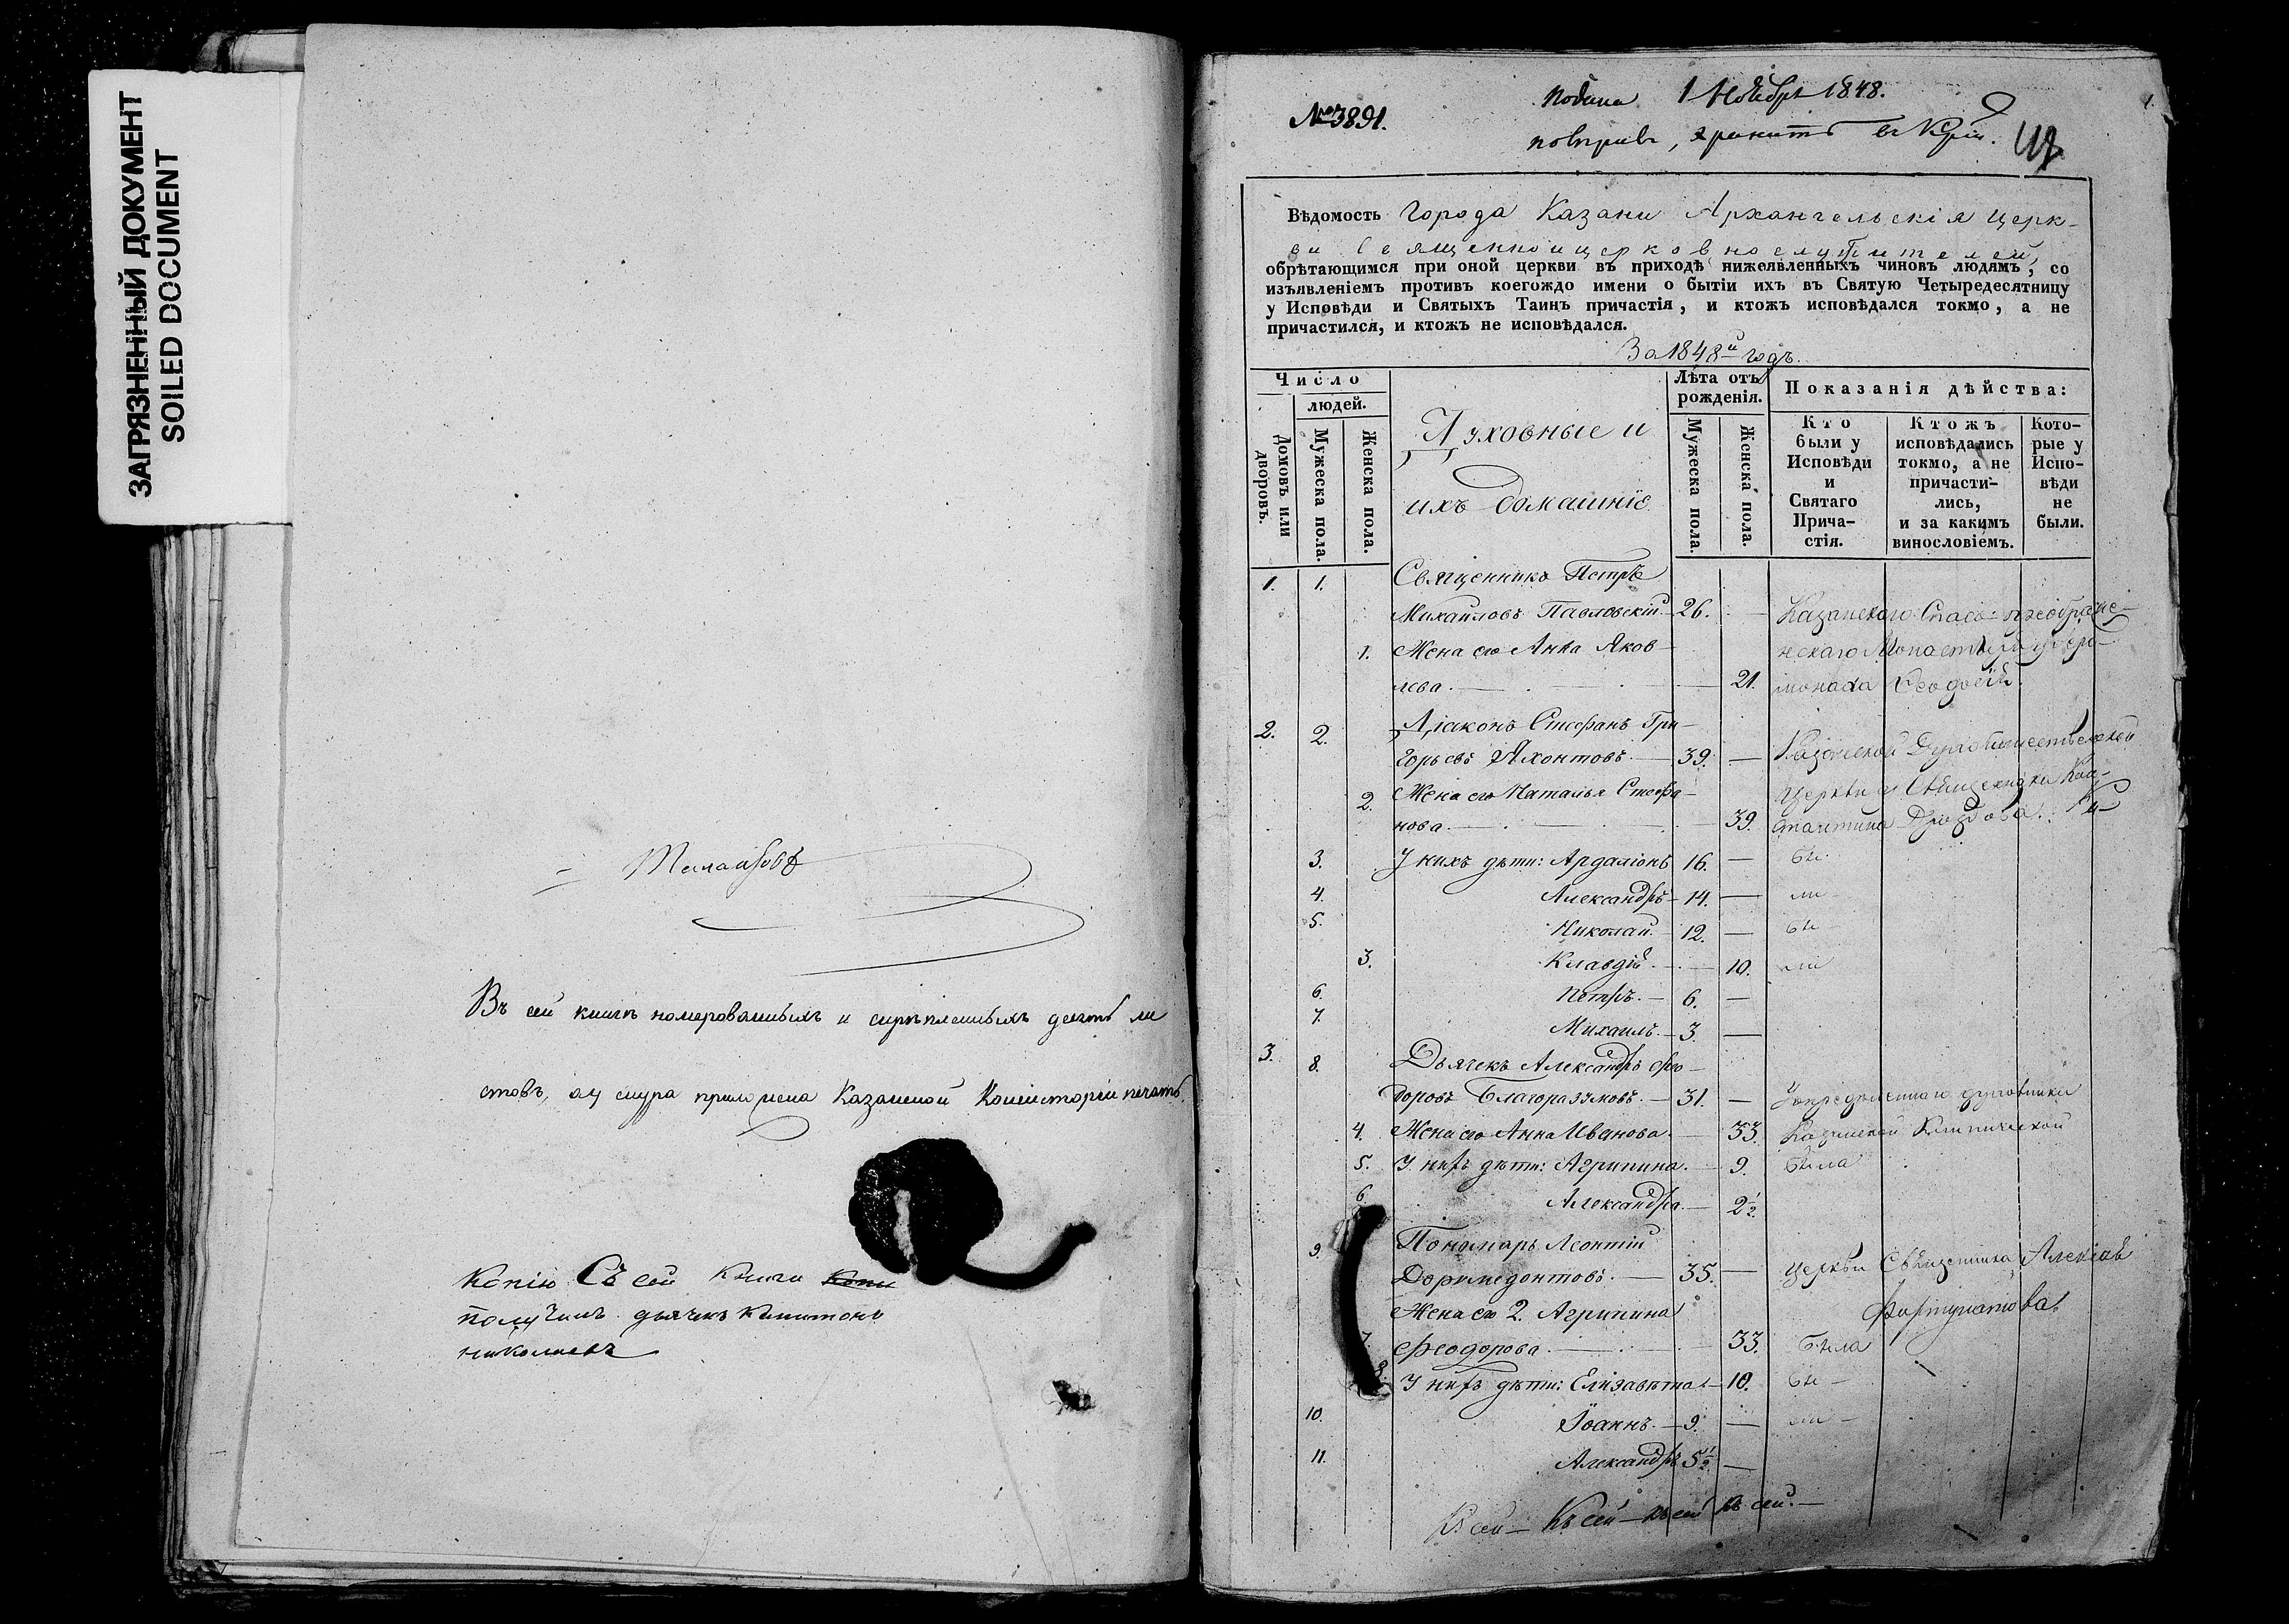 ЗАГРЯЗНЕННЫЙ ДОКУМЕНТ
SOILED DOCUMENT
Въ сей книгѣ номерованныхъ и скрѣпленныхъ десять ли
стовъ, а у снура приложена Казанской Консисторіи печать.
Копію Съ сей книги
получилъ дьячекъ
Николаевъ
№ 3891.
Подана 1 Ноября 1848.
повѣривъ, хранить въ
1.
Вѣдомость Города Казани Архангельскія церк-
ви Священноицерковнослужителей,
обрѣтающимся при оной церкви въ приходѣ нижеявленныхъ чиновъ людямъ, со
изъявленіемъ противъ коегождо имени о бытіи ихъ въ Святую Четыредесятницу
у Исповѣди и Святыхъ Таинъ причастія, и ктожъ исповѣдался токмо, а не
причастился, и ктожъ не исповѣдался.
За 1848й годъ.
Число
людей.
Домовъ или
дворовъ.
Мужеска пола.
Женска пола.
Духовные и
ихъ домашніе
Лѣта отъ
рожденія.
Мужеска пола.
Женска пола.
Показанія дѣйства:
Кто
были у
Исповѣди
и
Святаго
Прича-
стія.
Ктожъ
исповѣдались
токмо, а не
причасти-
лись,
и за какимъ
винословіемъ.
Кото-
рые у
Испо-
вѣди
не
были.
1. 1. Священникъ Петръ
Михайловъ Павловскій. 26. — Казанскаго Спасо-преображе-
1. Жена его Анна Яков- нскаго Монастыря у Іеро-
лева. 21. монаха
2. 2. Діаконъ Стефанъ Гри-
горьевъ Яхонтовъ. 39. — Казанской
2. Жена его Наталья Стефа- Церкви у Священника Кон-
нова. 39. стантина
3. У нихъ дѣти: Ардаліонъ 16. — бы
4. Александръ 14. — ли
5. Николай 12. — бы
3. Клавдія 10. ли
6. Петръ. 6. —
7. Михаилъ. 3. —
3. 8. Дьячекъ Александръ Фео-
доровъ Благоразумовъ. 31. — У опредѣленнаго духовника
4. Жена его Анна Иванова. 33. Казанской
5. У нихъ дѣти: Агрипина. 9. была
6. Александра. 2 1/2.
9. Пономарь Леонтій
Доримедонтовъ. 35. — церкви Священника Алексія
Жена его 2. Агрипина Фортунатова
7. Феодорова 33. была
8. У нихъ дѣти: Елизавета 10. бы
10. Іоаннъ. 9. — ли
11. Александръ 5 1/2. —
Къ сей — Къ сей — Къ сей Къ сей. —